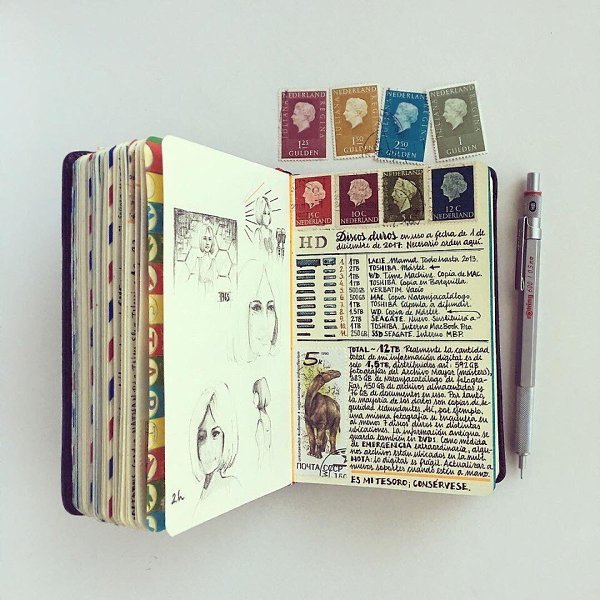 JULIANA NEDERLAND REGINA
1.25
GULDEN
JULIANA NEDERLAND REGINA
1.50
GULDEN
JULIANA NEDERLAND REGINA
2.50
GULDEN
JULIANA NEDERLAND REGINA
1
GULDEN
15 C
NEDERLAND
10 C
NEDERLAND
5 C
NEDERLAND
12 C
NEDERLAND
HD Discos duros en uso a fecha de 1 de
diciembre de 2017. Necesario orden aquí.
1. 1TB LACIE. Mamut. Todo hasta 2013.
2. 2TB TOSHIBA. Máster.
3. 1TB WD. Time Machine. Copia de MAC.
4. 1TB TOSHIBA. Copia en Barquilla.
5. 500GB VERBATIM. Vacío
6. 500GB MAC. Copia Naranjacatálogo.
7. 1TB TOSHIBA. Cápsula a difundir.
8. 1.5TB WD. Copia de Máster.
9. 2TB SEAGATE. Nuevo. Sustituirá a
10. 1TB TOSHIBA. Interno MacBook Pro.
11. 250GB SSD SEAGATE. Interno MBP.
TOTAL ~ 12TB Realmente la cantidad
total de mi información digital es de
solo 1,5TB, distribuidos así: 592GB
fotografías del Archivo Mayor (máster),
383GB de Naranjacatálogo de fotogra-
fías, 450GB de archivos almacenados y
76GB de documentos en uso. Por tanto,
la mayoría de los datos son copias de se-
guridad redundantes. Así, por ejemplo,
una misma fotografía se encuentra en
al menos 7 discos duros en distintas
ubicaciones. La información antigua se
guarda también en DVDS. Como medida
de EMERGENCIA extraordinaria, algu-
nos archivos están ubicados en la nube.
NOTA: lo digital es frágil. Actualizar a
nuevos soportes cuando estén a mano.
ES MI TESORO; CONSÉRVESE.
5к
1990
ПОЧТА СССР
2h
rotring 600